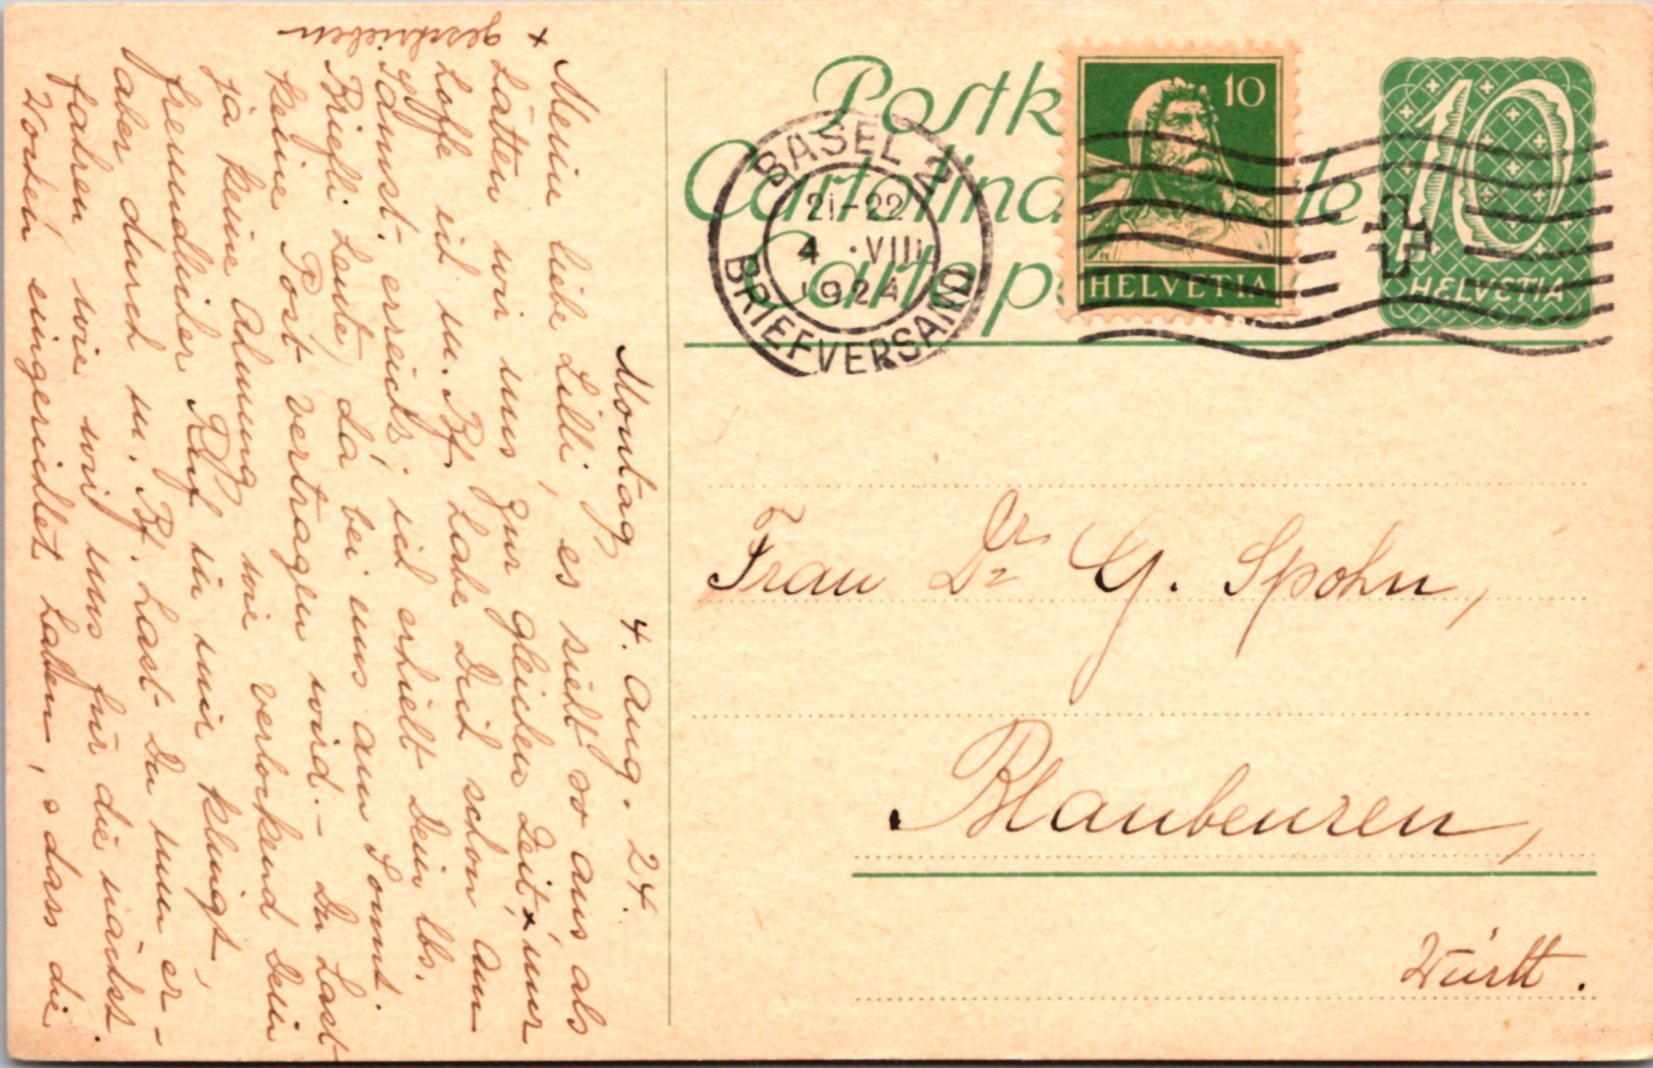 Postk
Cartolina le
Carte p
BASEL 2
21-22
4 · VIII
1924
BRIEFVERSAND
10
HELVETIA
10
HELVETIA
Frau Dr. G. Spohn,
Blaubeuren,
Württ.
Montag 4. Aug. 24.
Meine liebe Lilli, es sieht so aus als
hätten wir uns zur gleichen Zeit, + nur
hoffe ich m. Bf. habe Dich schon am
Samst. erreicht; ich erhielt Dein lbs.
Briefli heute, da bei uns am Sonnt.
keine Post vertragen wird. – Du hast
ja keine Ahnung wie verlockend Dein
freundlicher Ruf in mir klingt,
aber durch m. Bf. hast Du nun er-
fahren wie wir uns für die nächst.
Wochen eingerichtet haben, s dass die
+
geschrieben